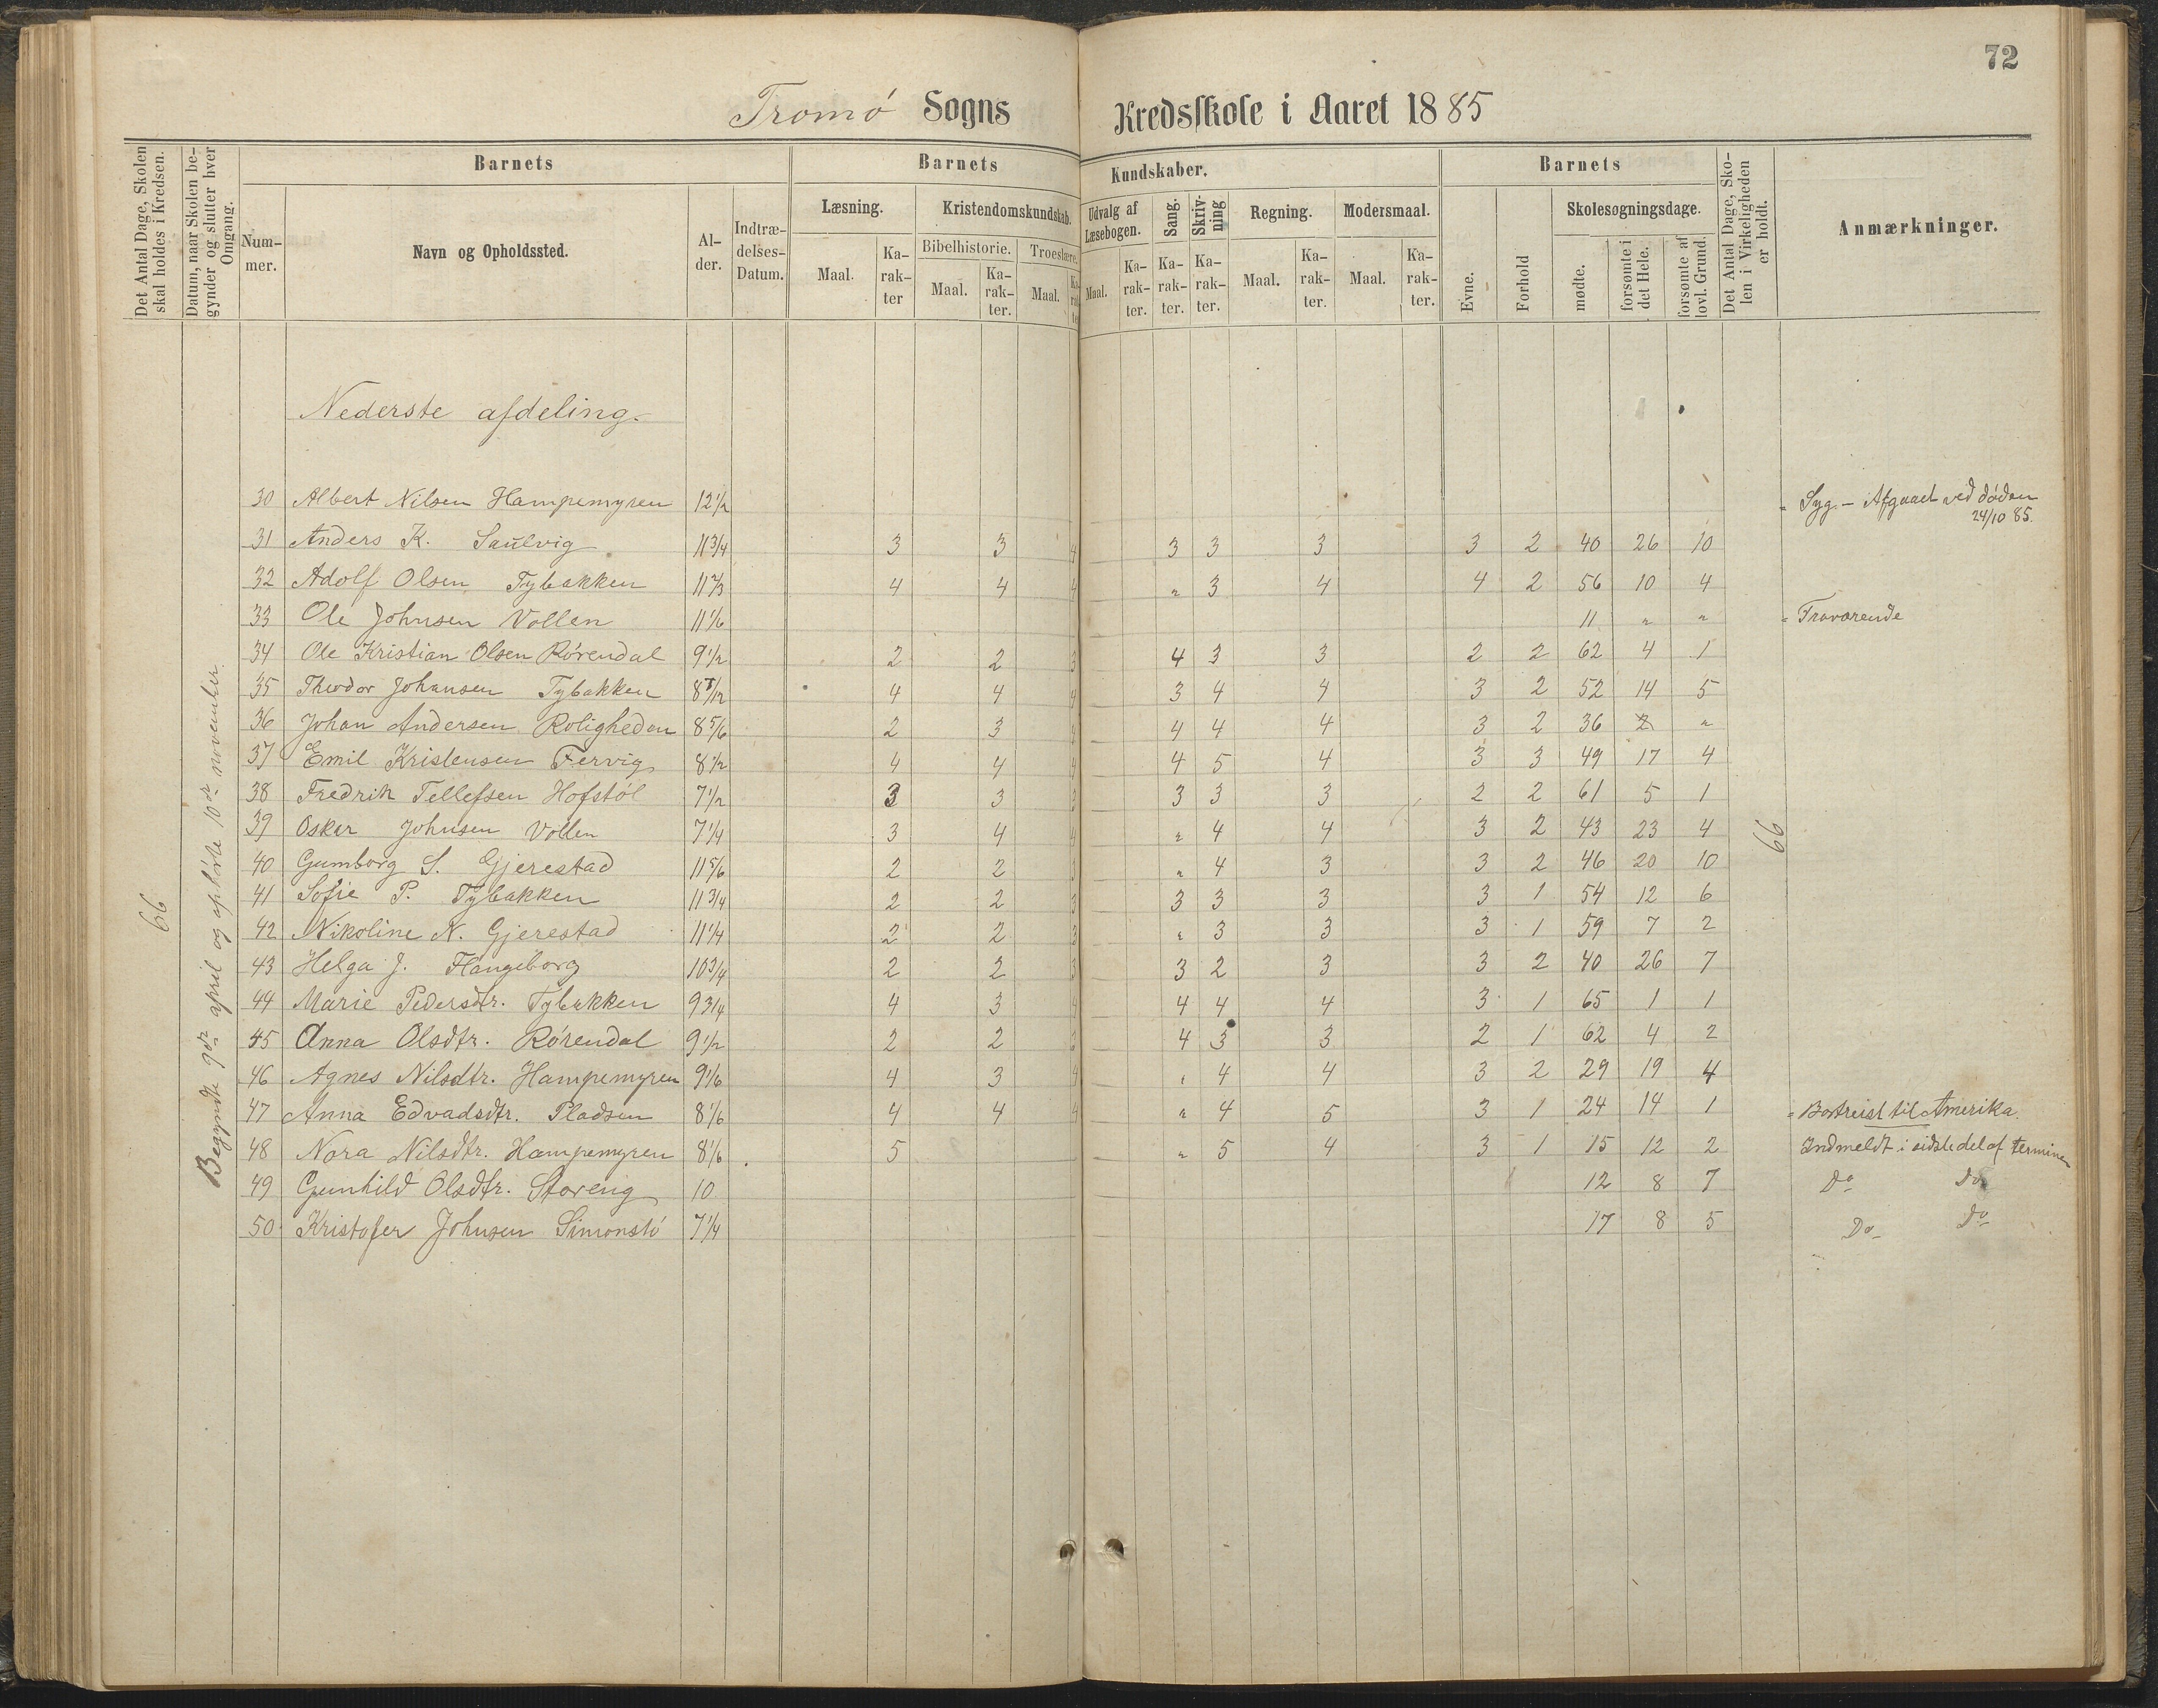 72
Tromø Sogns Kredsskole i Aaret 1885
Det Antal Dage, Skolen skal holdes i Kredsen.
Datum, naar Skolen begynder og slutter hver Omgang.
Barnets
Barnets
Kundskaber.
Barnets
Det Antal Dage, Skolen i Virkeligheden er holdt.
Anmærkninger.
Nummer.
Navn og Opholdssted.
Alder.
Indtrædelses-Datum.
Læsning.
Kristendomskundskab.
Udvalg af Læsebogen.
Sang.
Skrivning
Regning.
Modersmaal.
Evne.
Forhold
Skolesøgningsdage.
Bibelhistorie.
Troeslære.
mødte.
forsømte i det Hele.
forsømte af lovl. Grund.
Maal.
Karakter
Maal.
Karakter.
Maal.
Maal.
Karakter.
Karakter.
Karakter.
Maal.
Karakter.
Maal.
Karakter.
66
Begyndte 9de april og ophørte 10de november.
66
Nederste afdeling.
30 Albert Nilsen Hampemyren 12 1/2 " Syg. – Afgaaet ved døden 24/10 85.
31 Anders K. Saulvig 11 3/4 3 3 4 3 3 3 3 2 40 26 10
32 Adolf Olsen Tybakken 11 2/3 4 4 4 " 3 4 4 2 56 10 4
33 Ole Johnsen Vollen 11 1/6 11 " " " Fraværende
34 Ole Kristian Olsen Rørendal 9 1/2 2 2 3 4 3 3 2 2 62 4 1
35 Theodor Johansen Tybakken 4 4 4 3 4 4 3 2 52 14 5
36 Johan Andersen Roligheden 8 5/6 2 3 4 4 4 4 3 2 36 2 "
37 Emil Kristensen Fervig 8 1/2 4 4 4 4 5 4 3 3 49 17 4
38 Fredrik Tellefsen Hofstøl 7 1/2 3 3 3 3 3 3 2 2 61 5 1
39 Oskar Johnsen Vollen 7 1/4 3 4 4 " 4 4 3 2 43 23 4
40 Gumborg S. Gjerestad 11 5/6 2 2 3 " 4 3 3 2 46 20 10
41 Sofie P. Tybakken 11 3/4 2 2 3 3 3 3 3 1 54 12 6
42 Nikoline N. Gjerestad 11 1/4 2 2 3 " 3 3 3 1 59 7 2
43 Helga J. Hangeborg 10 3/4 2 2 3 3 2 3 3 2 40 26 7
44 Marie Pedersdtr. Tybakken 9 3/4 4 3 4 4 4 4 3 1 65 1 1
45 Anna Olsdtr. Rørendal 9 1/2 2 2 4 3 3 2 1 62 4 2
46 Agnes Nilsdtr. Hampemyren 9 1/6 4 3 4 " 4 4 3 2 29 19 4
47 Anna Edvadsdtr. Pladsen 8 1/6 4 4 4 " 4 5 3 1 24 14 1 " Bortreist til Amerika.
48 Nora Nilsdtr. Hampemyren 8 1/6 5 " 5 4 3 1 15 12 2 Indmeldt i sidste del af terminen
49 Gunhild Olsdtr. Støreng 10 12 8 7 Do Do
50 Kristofer Johnsen Simonstø 7 1/4 17 8 5 Do Do